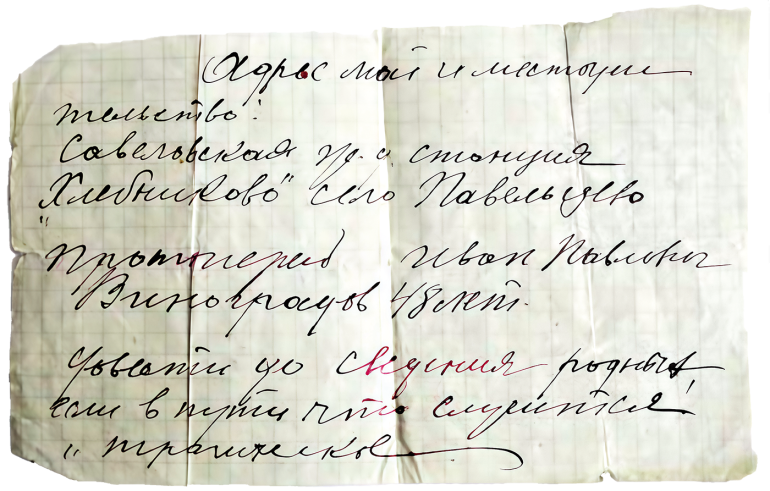 Адрес мой и местожи
тельство:
Савеловская ж. д. станция
"Хлебниково" село Павельцево
Протоиерей Иван Павлович
Виноградов 48 лет.
Довести до сведения родных,
если в пути что случится
"трагическое